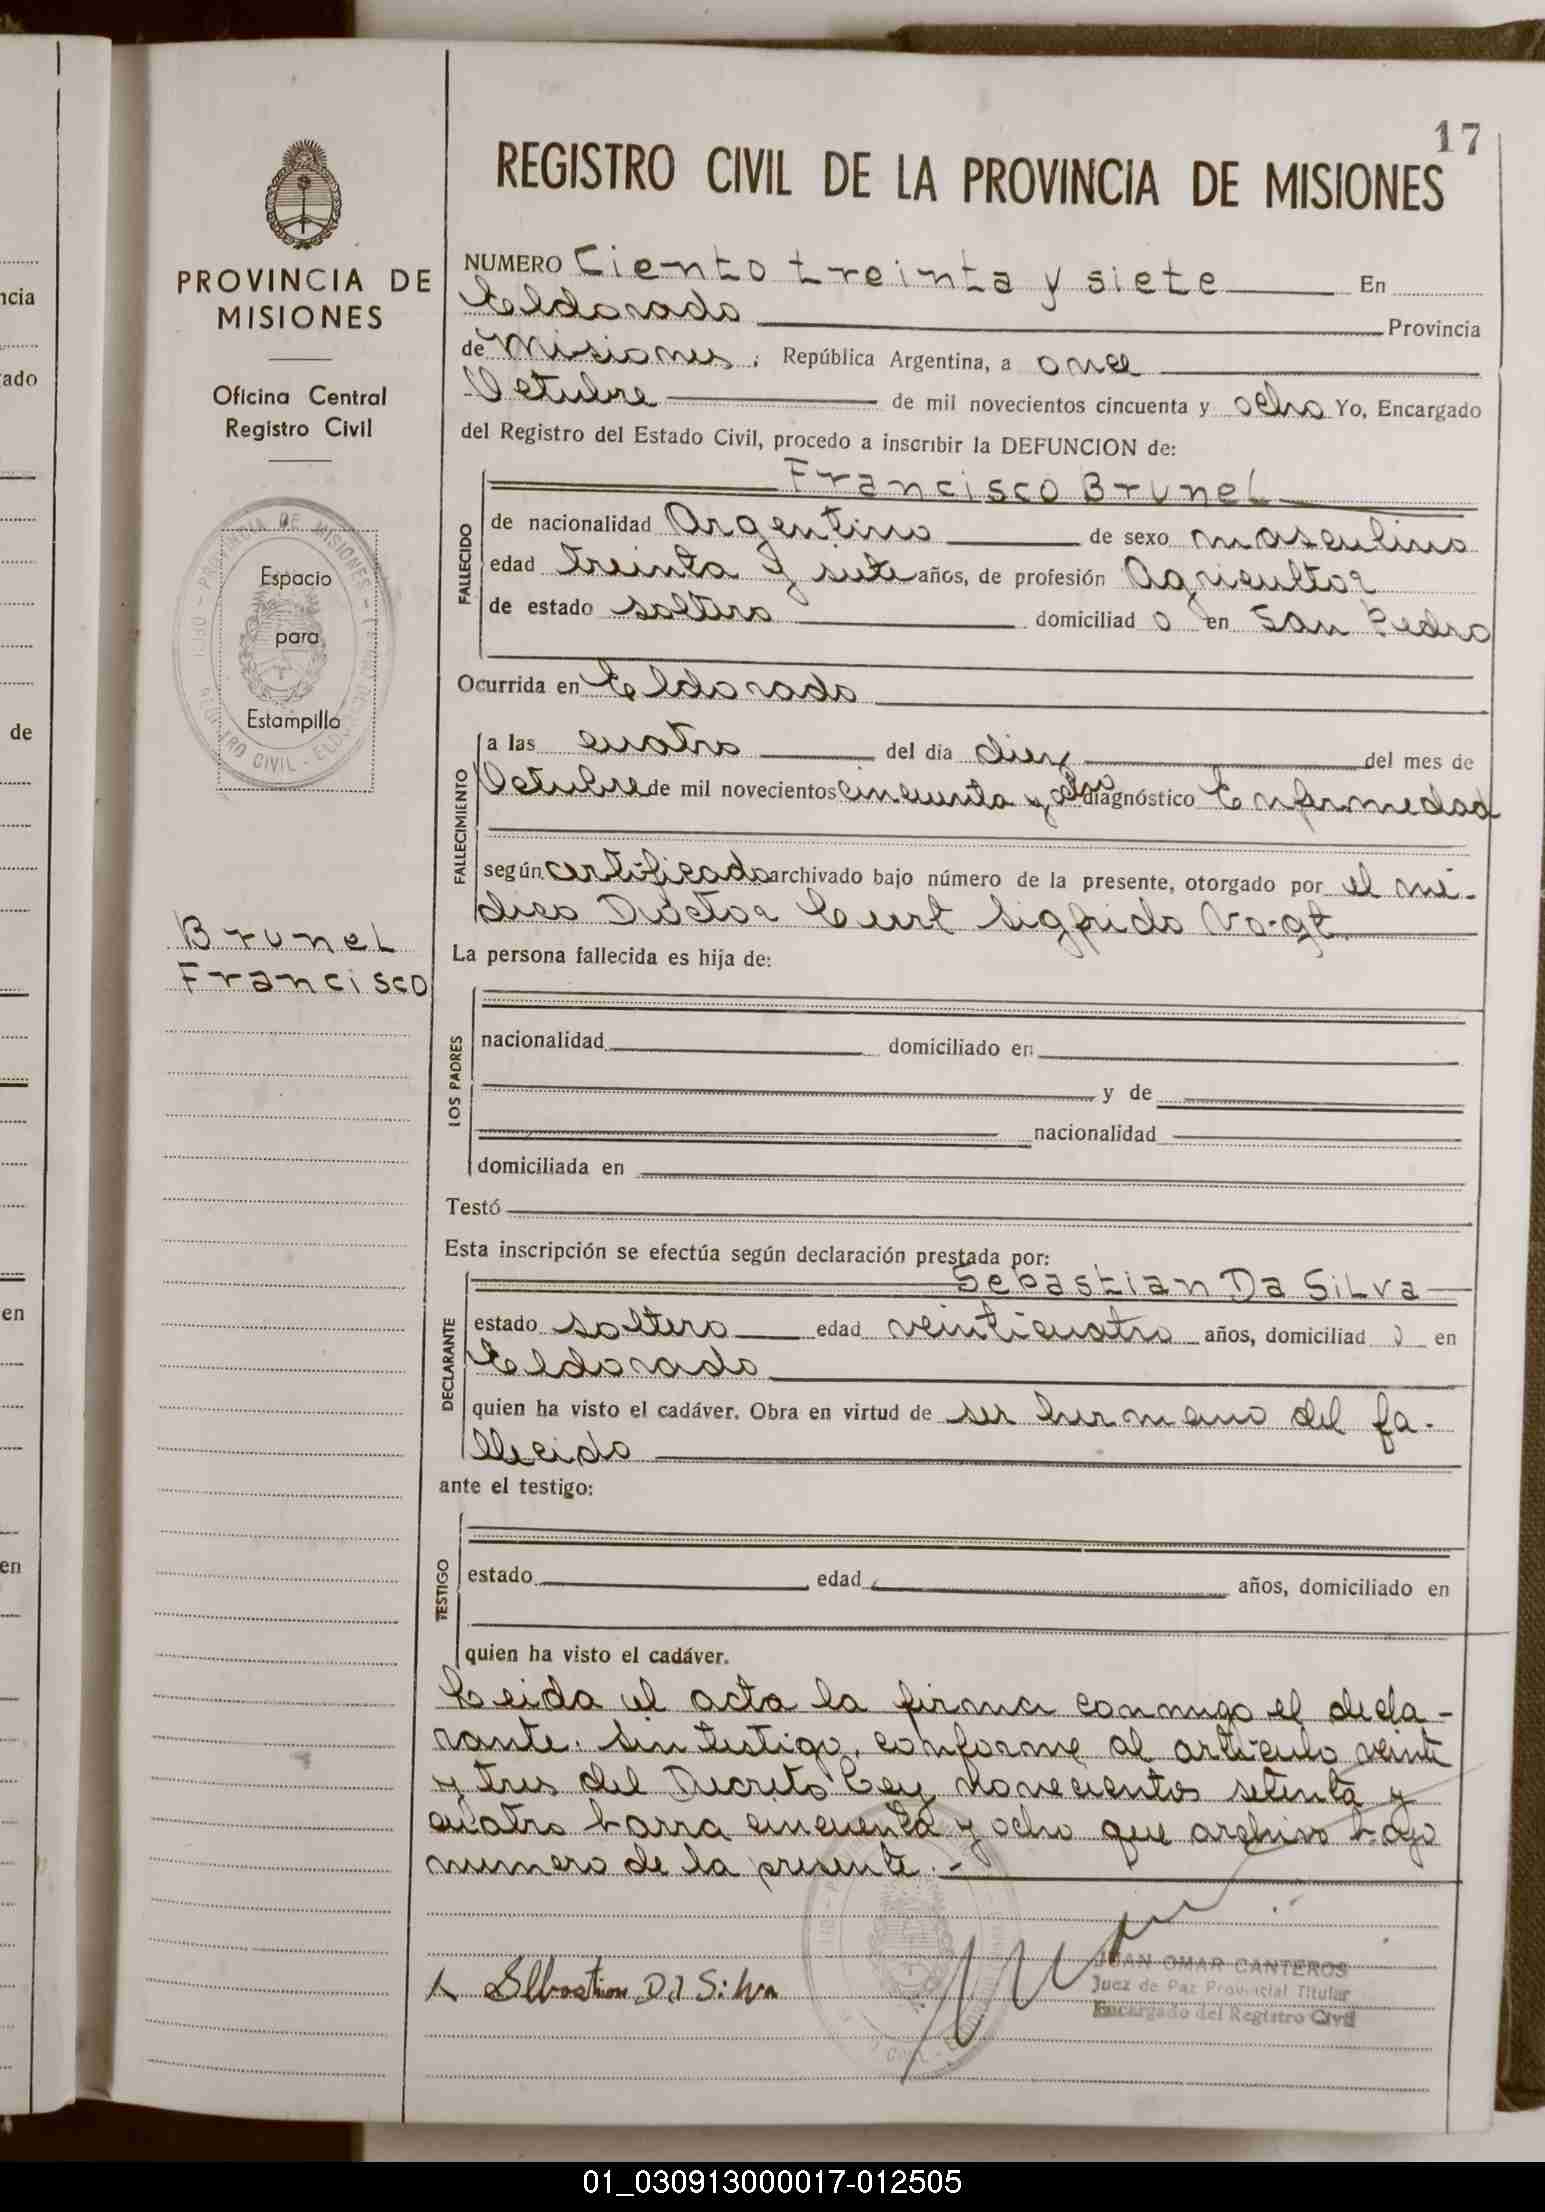 17
REGISTRO CIVIL DE LA PROVINCIA DE MISIONES
PROVINCIA DE
MISIONES
Oficina Central
Registro Civil
Espacio
para
Estampilla
Brunel
Francisco
NUMERO Ciento treinta y siete En
Eldorado Provincia
de Misiones, República Argentina, a once
Octubre de mil novecientos cincuenta y ocho Yo, Encargado
del Registro del Estado Civil, procedo a inscribir la DEFUNCION de:
Francisco Brunel
FALLECIDO
de nacionalidad Argentino de sexo masculino
edad treinta y siete años, de profesión Agricultor
de estado soltero domiciliad o en San Pedro
Ocurrida en Eldorado
FALLECIMIENTO
a las cuatro del dia diez del mes de
Octubre de mil novecientos cincuenta y ocho diagnóstico Enfermedad
según certificado archivado bajo número de la presente, otorgado por el mé-
dico Doctor Curt Sigfrido Vogt
La persona fallecida es hija de:
LOS PADRES
nacionalidad domiciliado en
y de
nacionalidad
domiciliada en
Testó
Esta inscripción se efectúa según declaración prestada por:
Sebastian Da Silva
DECLARANTE
estado soltero edad veinticuatro años, domiciliad o en
Eldorado
quien ha visto el cadáver. Obra en virtud de ser hermano del fa-
llecido
ante el testigo:
TESTIGO
estado edad años, domiciliado en
quien ha visto el cadáver.
Leida el acta la firma conmigo el decla-
rante. Sin testigo, conforme al artículo veinte
y tres del Decreto Ley novecientos setenta y
cuatro barra cincuenta y ocho que archivo bajo
numero de la presente.-
Sebastian Da Silva
JUAN OMAR CANTEROS
Juez de Paz Provincial Titular
Encargado del Registro Civil
01_030913000017-012505